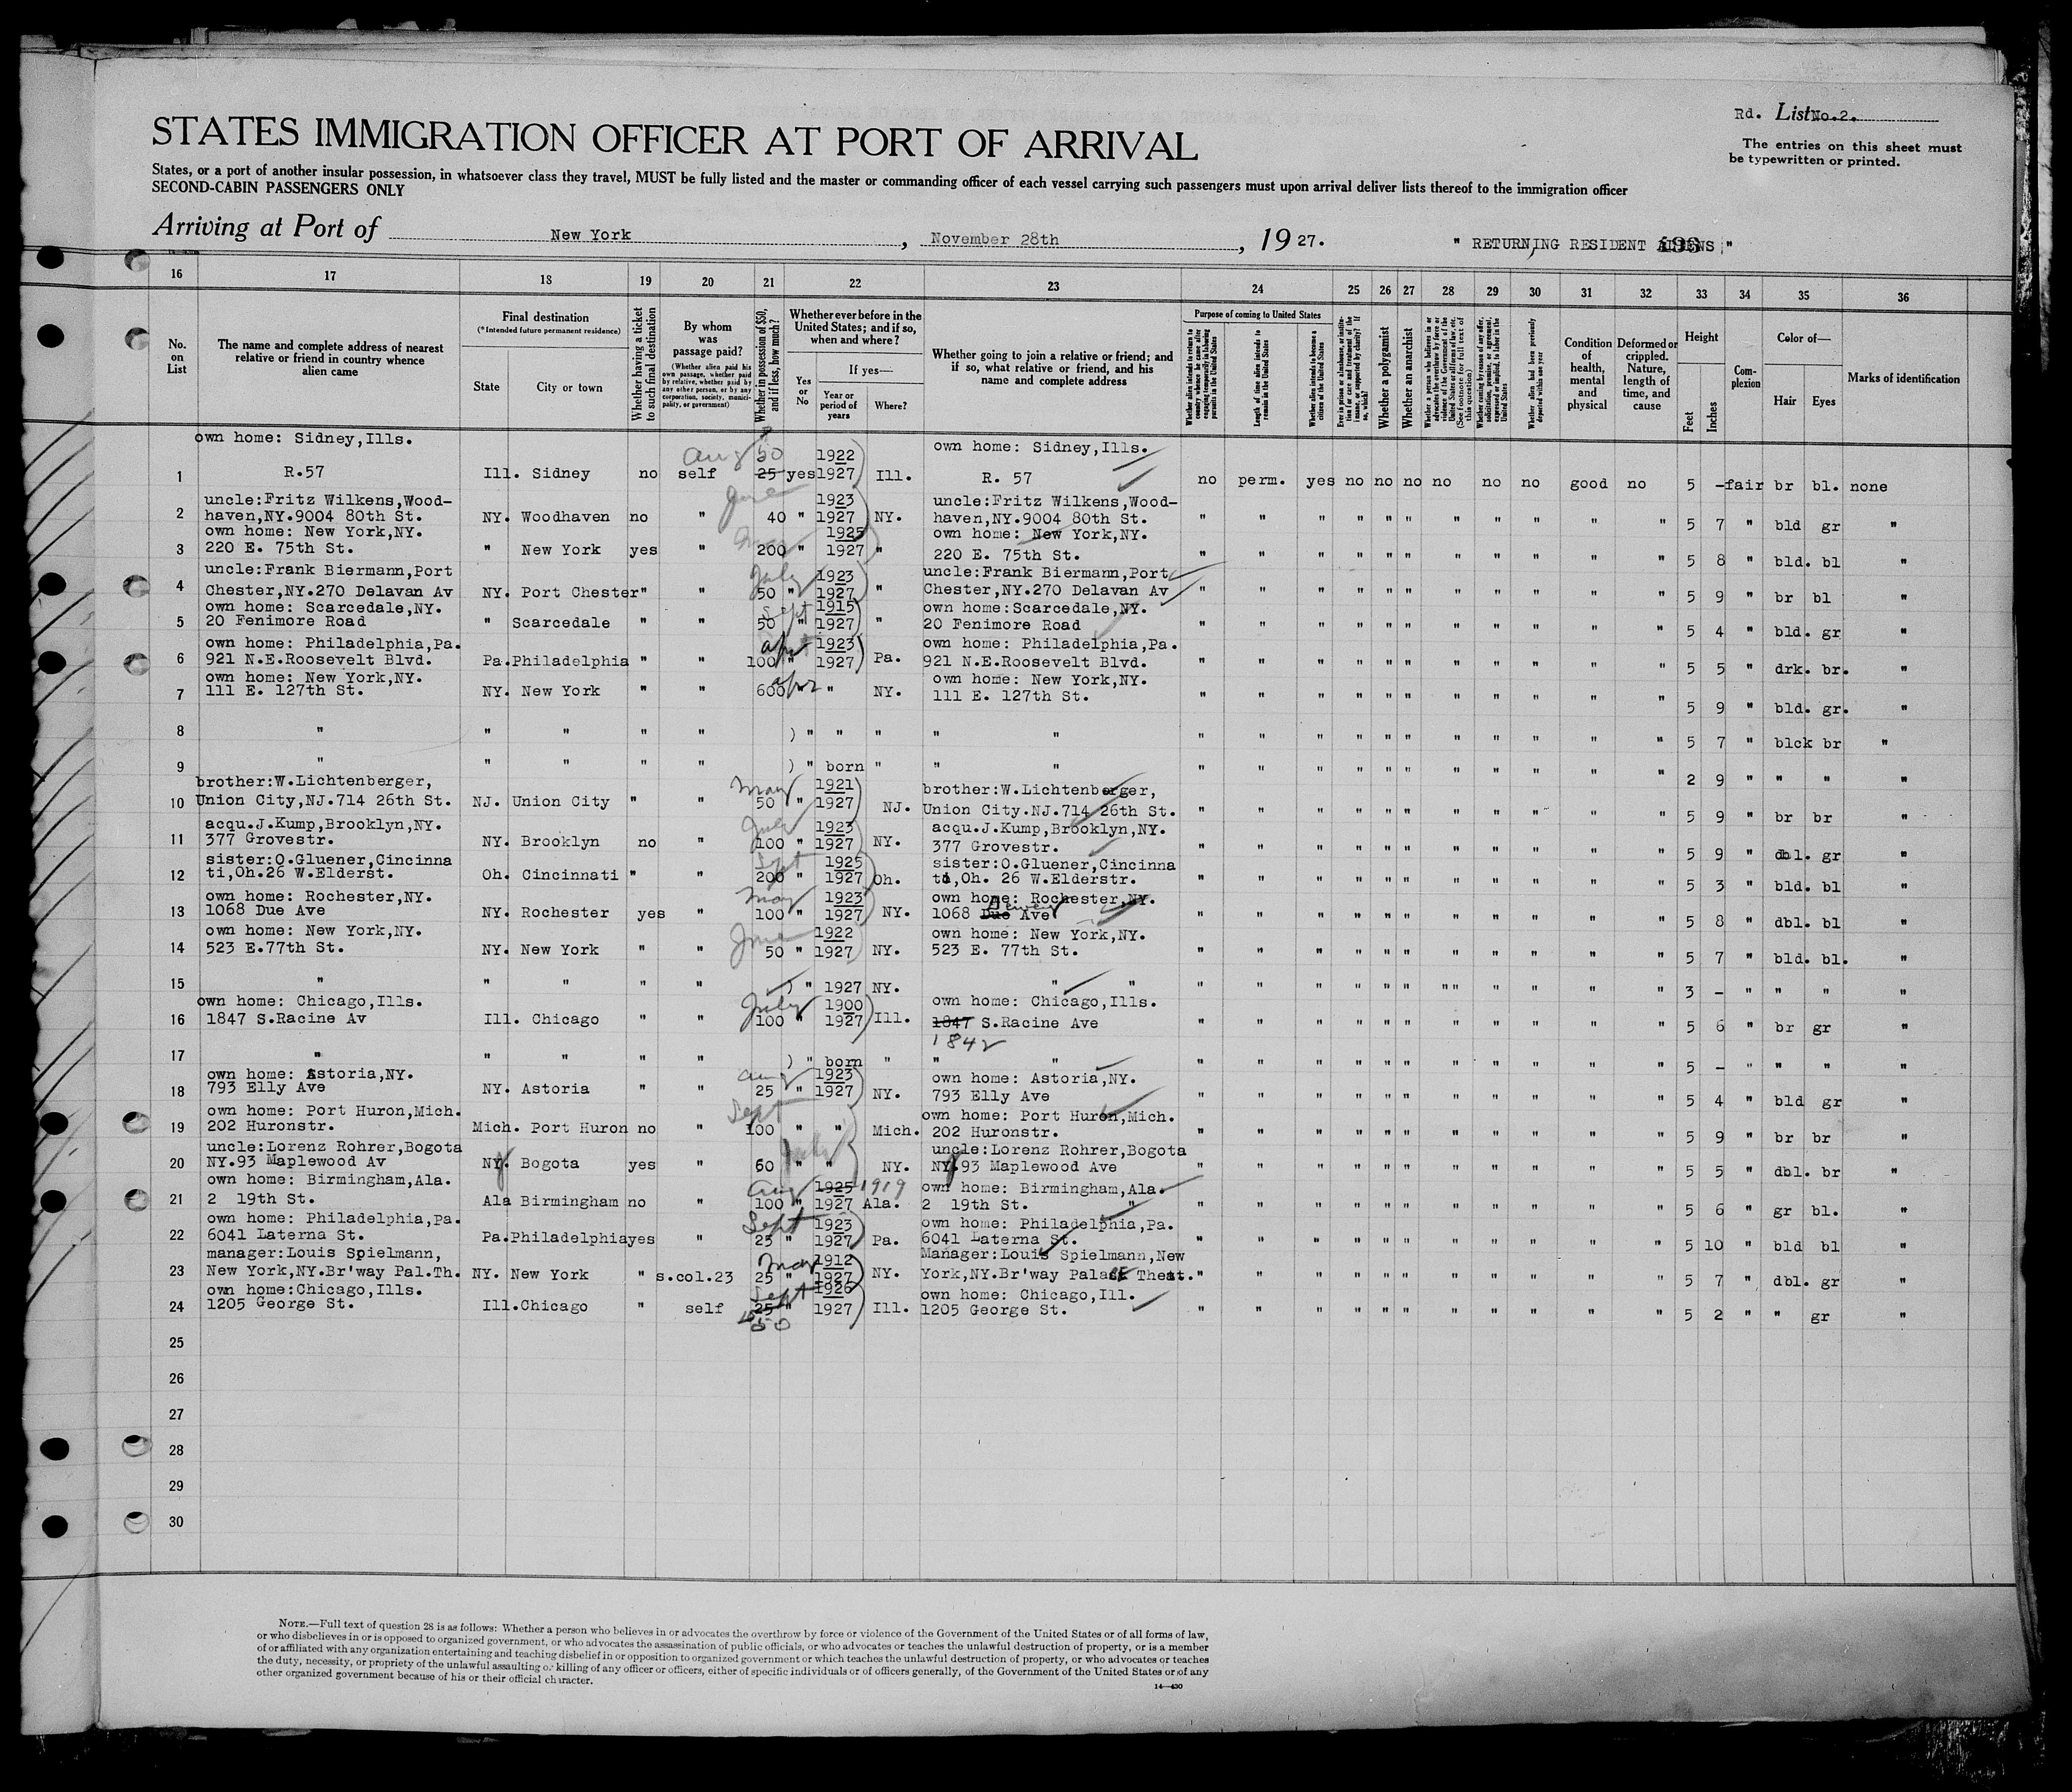 Rd. List No.2.
STATES IMMIGRATION OFFICER AT PORT OF ARRIVAL
The entries on this sheet must
be typewritten or printed.
States, or a port of another insular possession, in whatsoever class they travel, MUST be fully listed and the master or commanding officer of each vessel carrying such passengers must upon arrival deliver lists thereof to the immigration officer
SECOND-CABIN PASSENGERS ONLY
Arriving at Port of New York, November 28th, 1927. " RETURNING RESIDENT ALIENS "
16 17 18 19 20 21 22 23 24 25 26 27 28 29 30 31 32 33 34 35 36
No. on List
The name and complete address of nearest relative or friend in country whence alien came
Final destination
(*Intended future permanent residence)
State
City or town
Whether having a ticket to such final destination
By whom was passage paid?
(Whether alien paid his own passage, whether paid by relative, whether paid by any other person, or by any corporation, society, municipality, or government)
Whether in possession of $50, and if less, how much?
Whether ever before in the United States; and if so, when and where?
Yes or No
If yes—
Year or period of years
Where?
Whether going to join a relative or friend; and if so, what relative or friend, and his name and complete address
Purpose of coming to United States
Whether alien intends to return to country whence he came after engaging temporarily in laboring pursuits in the United States
Length of time alien intends to remain in the United States
Whether alien intends to become a citizen of the United States
Ever in prison or almshouse, or institution for care and treatment of the insane, or supported by charity? If so, which?
Whether a polygamist
Whether an anarchist
Whether a person who believes in or advocates the overthrow by force or violence of the Government of the United States or all forms of law, etc. (See footnote for full text of this question)
Whether coming by reason of any offer, solicitation, promise, or agreement, expressed or implied, to labor in the United States
Whether alien had been previously deported within one year
Condition of health, mental and physical
Deformed or crippled. Nature, length of time, and cause
Height
Feet
Inches
Complexion
Color of—
Hair
Eyes
Marks of identification
own home: Sidney,Ills. Aug 50 1922 own home: Sidney,Ills.
1 R.57 Ill. Sidney no self 25 yes 1927 Ill. R. 57 no perm. yes no no no no no no good no 5 - fair br bl. none
uncle:Fritz Wilkens,Wood- June 1923 uncle:Fritz Wilkens,Wood-
2 haven,NY.9004 80th St. NY. Woodhaven no " 40 " 1927 NY. haven,NY.9004 80th St. " " " " " " " " " " " 5 7 " bld gr "
own home: New York,NY. 1925 own home: New York,NY.
3 220 E. 75th St. " New York yes " 200 " 1927 " 220 E. 75th St. " " " " " " " " " " " 5 8 " bld. bl "
uncle:Frank Biermann,Port July 1923 uncle:Frank Biermann,Port
4 Chester,NY.270 Delavan Av NY. Port Chester " " 50 " 1927 " Chester,NY.270 Delavan Av " " " " " " " " " " " 5 9 " br bl "
own home: Scarcedale,NY. Sept 1915 own home:Scarcedale,NY.
5 20 Fenimore Road " Scarcedale " " 50 " 1927 " 20 Fenimore Road " " " " " " " " " " " 5 4 " bld. gr "
own home: Philadelphia,Pa. Apr 1923 own home: Philadelphia,Pa.
6 921 N.E.Roosevelt Blvd. Pa. Philadelphia " " 100 " 1927 Pa. 921 N.E.Roosevelt Blvd. " " " " " " " " " " " 5 5 " drk. br. "
own home: New York,NY. Apr own home: New York,NY.
7 111 E. 127th St. NY. New York " " 600 " " NY. 111 E. 127th St. " " " " " " " " " " " 5 9 " bld. gr. "
8 " " " " " ) " " " " " " " " " " " " " " " " " 5 7 " blck br "
9 " " " " " ) " born " " " " " " " " " " " " " " " 2 9 " " " "
brother:W.Lichtenberger, May 1921 brother:W.Lichtenberger,
10 Union City,NJ.714 26th St. NJ. Union City " " 50 " 1927 NJ. Union City.NJ.714 26th St. " " " " " " " " " " " 5 9 " br br "
acqu.J.Kump,Brooklyn,NY. July 1923 acqu.J.Kump,Brooklyn,NY.
11 377 Grovestr. NY. Brooklyn no " 100 " 1927 NY. 377 Grovestr. " " " " " " " " " " " 5 9 " dbl. gr "
sister:O.Gluener,Cincinna Sept 1925 sister:O.Gluener,Cincinna
12 ti,Oh.26 W.Elderst. Oh. Cincinnati " " 200 " 1927 Oh. ti,Oh. 26 W.Elderstr. " " " " " " " " " " " 5 3 " bld. bl "
own home: Rochester,NY. May 1923 own home: Rochester,NY.
13 1068 Due Ave NY. Rochester yes " 100 " 1927 NY. 1068 Due Dewey Ave " " " " " " " " " " " 5 8 " dbl. bl "
own home: New York,NY. June 1922 own home: New York,NY.
14 523 E.77th St. NY. New York " " 50 " 1927 NY. 523 E. 77th St. " " " " " " " " " " " 5 7 " bld. bl. "
15 " " " " " ) " 1927 NY. " " " " " " " " "" " " " " 3 - " " " "
own home: Chicago,Ills. July 1900 own home: Chicago,Ills.
16 1847 S.Racine Av Ill. Chicago " " 100 " 1927 Ill. 1847 S.Racine Ave " " " " " " " " " " " 5 6 " br gr "
1842
17 " " " " " ) " born " " " " " " " " " " " " " " " 5 - " " " "
own home: Astoria,NY. Aug 1923 own home: Astoria,NY.
18 793 Elly Ave NY. Astoria " " 25 " 1927 NY. 793 Elly Ave " " " " " " " " " " " 5 4 " bld gr "
own home: Port Huron,Mich. Sept own home: Port Huron,Mich.
19 202 Huronstr. Mich. Port Huron no " 100 " " Mich. 202 Huronstr. " " " " " " " " " " " 5 9 " br br "
uncle:Lorenz Rohrer,Bogota July uncle:Lorenz Rohrer,Bogota
20 NY.93 Maplewood Av NY. Bogota yes " 60 " " NY. NY.93 Maplewood Ave " " " " " " " " " " " 5 5 " dbl. br "
own home: Birmingham,Ala. Aug 1925 1919 own home: Birmingham,Ala.
21 2 19th St. Ala Birmingham no " 100 " 1927 Ala. 2 19th St. " " " " " " " " " " " " 5 6 " gr bl. "
own home: Philadelphia,Pa. Sept 1923 own home: Philadelphia,Pa.
22 6041 Laterna St. Pa. Philadelphia yes " 25 " 1927 Pa. 6041 Laterna St. " " " " " " " " " " " 5 10 " bld bl "
manager:Louis Spielmann, May 1912 Manager:Louis Spielmann,New
23 New York,NY.Br'way Pal.Th. NY. New York " s.col.23 25 " 1927 NY. York,NY.Br'way Palace Theat. " " " " " " " " " " " 5 7 " dbl. gr "
own home:Chicago,Ills. Sept 1926 own home: Chicago,Ill.
24 1205 George St. Ill. Chicago " self 25 " 1927 Ill. 1205 George St. " " " " " " " " " " " 5 2 " " gr "
50
25
26
27
28
29
30
NOTE.—Full text of question 28 is as follows: Whether a person who believes in or advocates the overthrow by force or violence of the Government of the United States or of all forms of law,
or who disbelieves in or is opposed to organized government, or who advocates the assassination of public officials, or who advocates or teaches the unlawful destruction of property, or is a member
of or affiliated with any organization entertaining and teaching disbelief in or opposition to organized government or which teaches the unlawful destruction of property, or who advocates or teaches
the duty, necessity, or propriety of the unlawful assaulting or killing of any officer or officers, either of specific individuals or of officers generally, of the Government of the United States or of any
other organized government because of his or their official character.
14—430